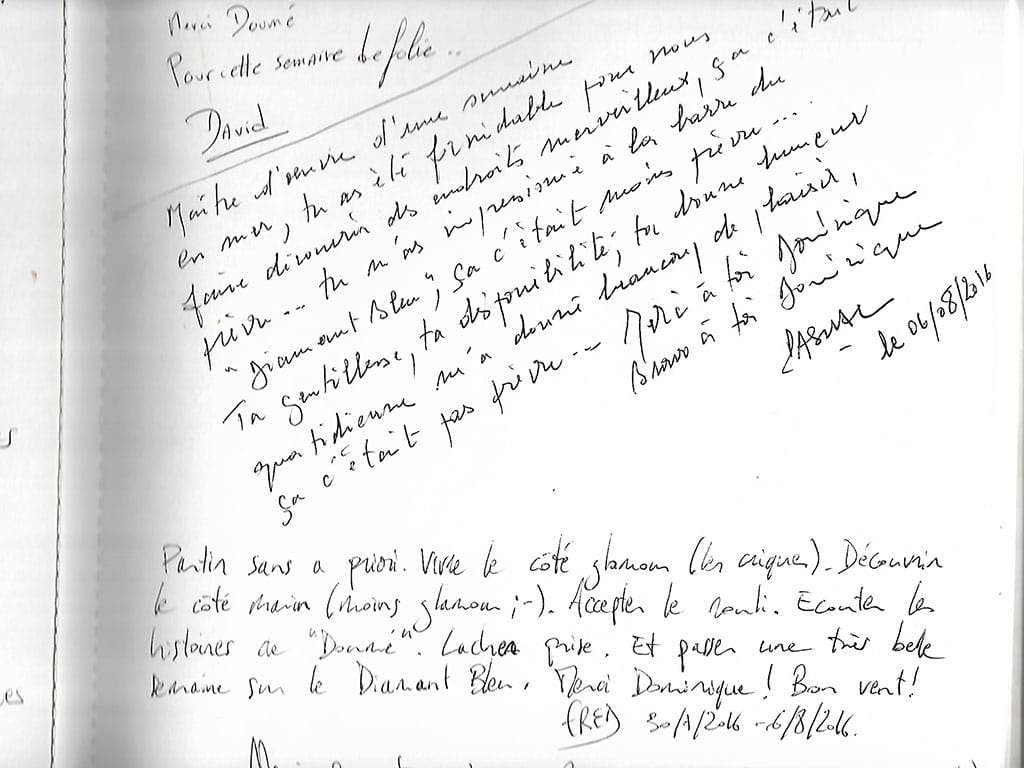 Merci Doumé
Pour cette semaine de folie..
David
Maître d'oeuvre d'une semaine
en mer, tu as été formidable pour nous
faire découvrir des endroits merveilleux, ça c'était
mièvre... tu m'as impressionné à la barre du
"Diamant Bleu", ça c'était moins mièvre...
Ta gentillesse, ta disponibilité, ta bonne humeur
quotidienne m'a donné beaucoup de plaisir,
ça c'était pas mièvre... Merci à toi Dominique
Bravo à toi Dominique
PASCAL
le 06/08/2016
Partir sans a priori. Vivre le côté glamour (les criques). Découvrir
le côté marin (moins glamour ;-). Accepter le roulis. Ecouter les
histoires de "Doumé". Lacher prise. Et passer une très belle
semaine sur le Diamant Bleu. Merci Dominique! Bon vent!
FRED 30/7/2016 - 6/8/2016.
es